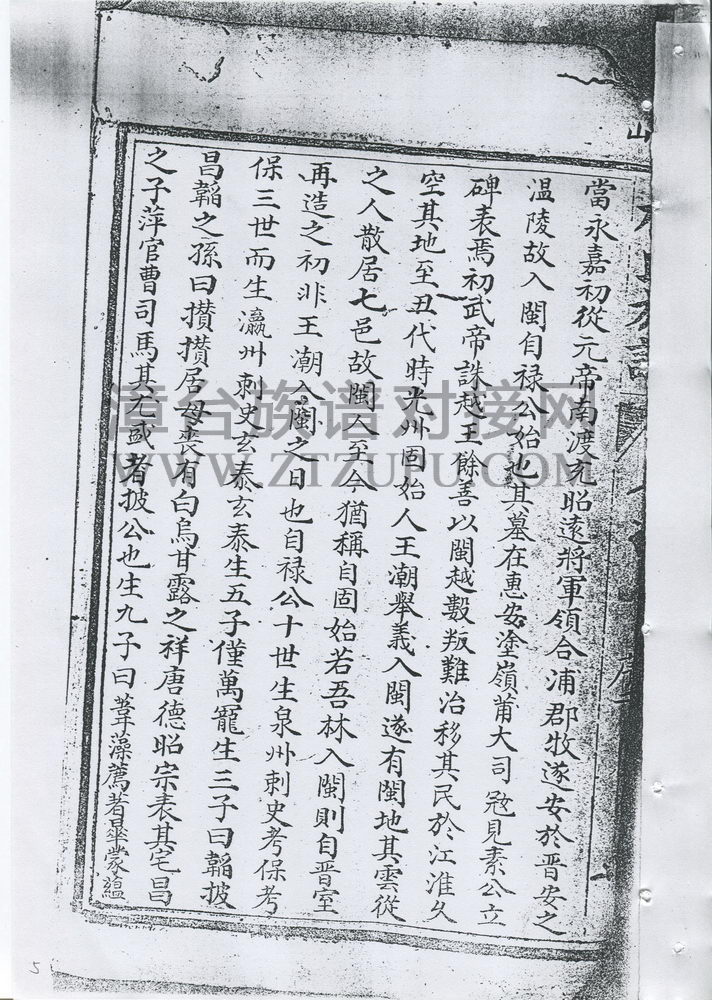 當永嘉初從元帝南渡充昭遠將軍領合浦郡牧遂安於晉安之
温陵故入閩自祿公始也其墓在惠安塗嶺莆大司冦見素公立
碑表焉初武帝誅越王餘善以閩越數叛難治移其民於江淮久
空其地至五代時光州固始人王潮舉義入閩遂有閩地其雲從
之人散居七邑故閩人至今猶稱自固始若吾林入閩則自晉室
再造之初非王潮入閩之日也自祿公十世生泉州刺史考保考
保三世而生瀛州刺史玄泰玄泰生五子僅萬寵生三子曰韜披
昌韜之孫曰攢攢居母喪有白烏甘露之祥唐德昭宗表其宅昌
之子萍官曹司馬其尤盛者披公也生九子曰葦藻薦著曅蒙蘊
漳台族谱对接网
WWW.ZTZUPU.COM
5